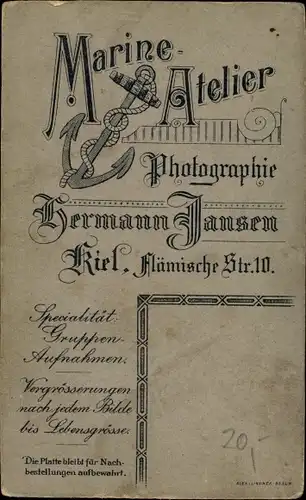 Marine-
Atelier
Photographie
Hermann Jansen
Kiel. Flämische Str. 10.
Specialität:
Gruppen-
Aufnahmen.
Vergrösserungen
nach jedem Bilde
bis Lebensgrösse.
Die Platte bleibt für Nach-
bestellungen aufbewahrt.
20,-